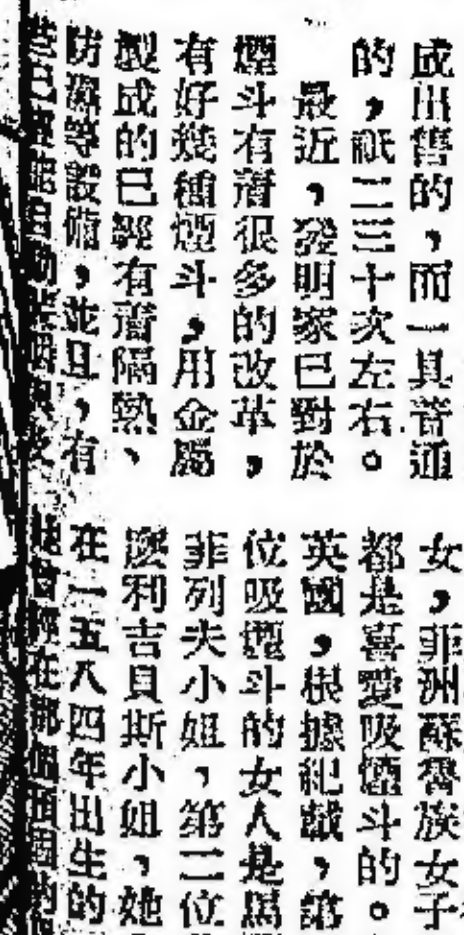 成出售的，而一具普通
的，祇二三十次左右。
最近，發明家已對於
煙斗有着很多的改革，
有好幾種煙斗，用金屬
製成的已經有着隔熱、
防濕等設備，並且，有
女，菲洲蘇魯族女子
都是喜愛吸煙斗的。
英國，根據紀載，第
位吸煙斗的女人是馬
菲列夫小姐，第二位
廖利吉貝斯小姐，她
在一五八四年出生的